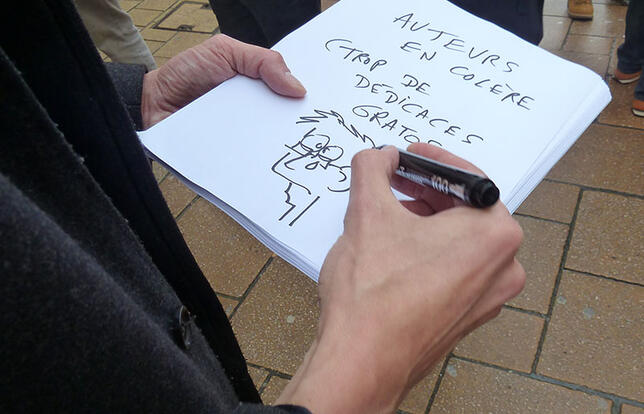 AUTEURS
EN COLÈRE
(TROP DE
DEDICACES
GRATOS
100